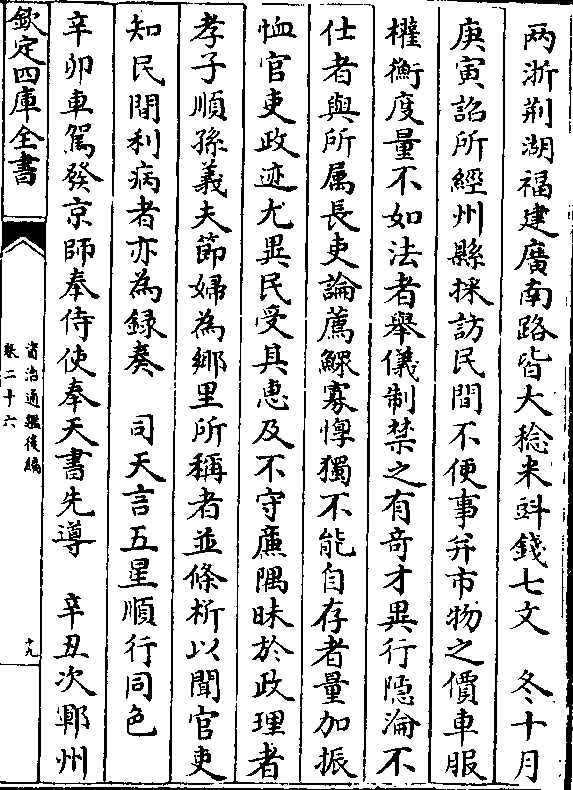 兩浙荆湖福建廣南路皆大稔米㪷錢七文　冬十月
庚寅詔所經州縣採訪民間不便事并市物之價車服
權衡度量不如法者舉儀制禁之有竒才異行隠淪不
仕者與所属長吏論薦鰥寡惸獨不能自存者量加振
恤官吏政迹尤異民受其惠及不守廉隅昧於政理者
孝子順孫義夫節婦為鄉里所稱者並條析以聞官吏
知民間利病者亦為録奏　司天言五星順行同色
辛卯車駕發京師奉侍使奉天書先導　辛丑次鄆州
欽定四庫全書
資治通鑑後編
卷二十六
十九